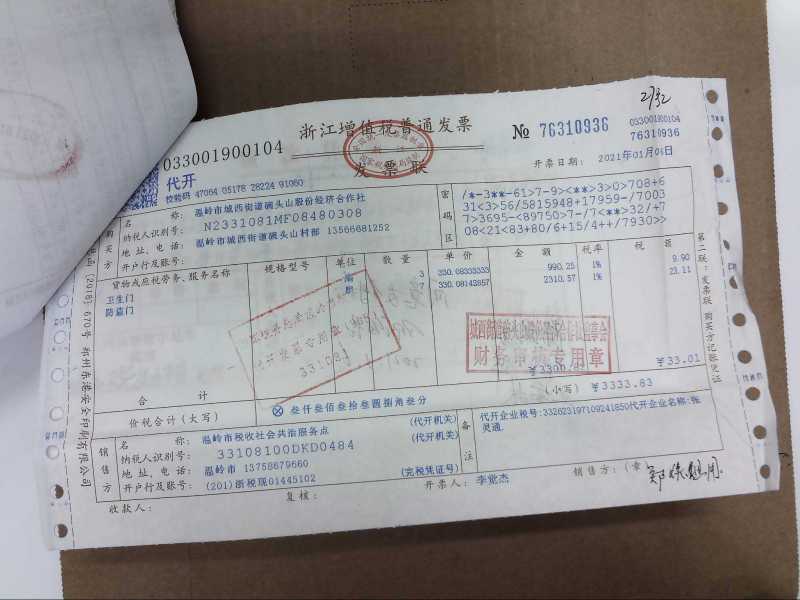 浙江增值税普通发票
发票联
033001900104
№ 76310936
033001900104
76310936
代开
校验码 47064 05178 28224 91060
开票日期: 2021年01月06日
购买方
名 称: 温岭市城西街道碗头山股份经济合作社
纳税人识别号: N2331081MF08480308
地址、电话: 温岭市城西街道碗头山村部 13566681252
开户行及账号:
密码区
/*-3**-61>7-9><**>3>0>708+6
31<3>56/5815948+17959-/7003
7>3695-<89750>7-/7<**>32/+7
08<21<83+80/6+15/4++/7930>>
货物或应税劳务、服务名称 规格型号 单位 数量 单价 金额 税率 税额
卫生门 3 330.08333333 990.25 1% 9.90
防盗门 7 330.08142857 2310.57 1% 23.11
财务审核专用章
331081
合计 ¥33.01
价税合计(大写) ⊗ 叁仟叁佰叁拾叁圆捌角叁分 (小写) ¥3333.83
销售方
名 称: 温岭市税收社会共治服务点 (代开机关)
纳税人识别号: 33108100DKD0484 (代开机关)
地址、电话: 温岭市 13758679660
开户行及账号: (201)浙税现01445102 (完税凭证号)
备注
代开企业税号:332623197109241850代开企业名称:张
灵通.
收款人:
复核:
开票人: 李觉杰
销售方:(章)
第二联:发票联 购买方记账凭证